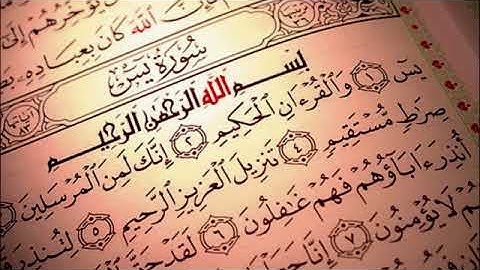 يُؤَخِّرُهُمْ إِلَىٰ
ٱللَّهَ كَانَ بِعِبَادِهِۦ
سُورَةُ يسٓ
بِسْمِ ٱللَّهِ ٱلرَّحْمَٰنِ ٱلرَّحِيمِ
يسٓ ١ وَٱلْقُرْءَانِ ٱلْحَكِيمِ ٢ إِنَّكَ لَمِنَ ٱلْمُرْسَلِينَ
صِرَٰطٍ مُّسْتَقِيمٍ ٤ تَنزِيلَ ٱلْعَزِيزِ ٱلرَّحِيمِ ٥ لِتُنذِرَ
أُنذِرَ ءَابَآؤُهُمْ فَهُمْ غَٰفِلُونَ ٦ لَقَدْ حَقَّ
لَا يُؤْمِنُونَ ٧ إِنَّا